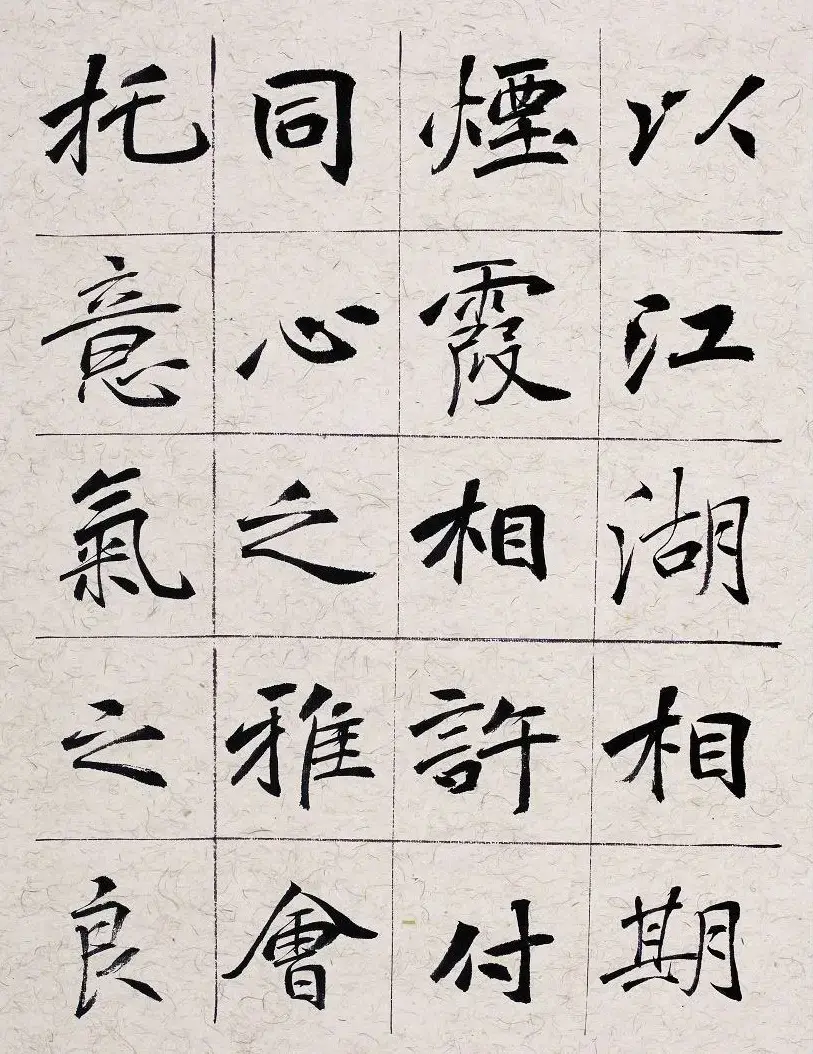 以江湖相期
煙霞相許付
同心之雅會
托意氣之良